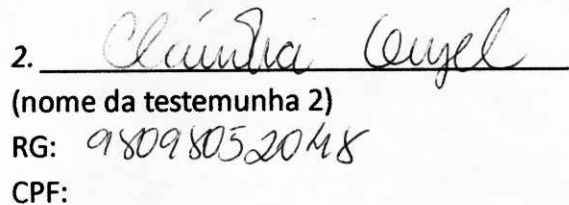 2. Cláudia
(nome da testemunha 2)
RG: 98098052048
CPF: